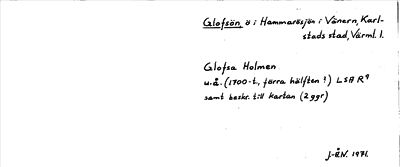 Glofsön, ö i Hammarösjön i Vänern, Karl-
stads stad, Värml. l.
Glofsa Holmen
u.å. (1700-t., förra hälften?) LSA R9
samt beskr. till kartan (2 ggr)
J-ÅN. 1971.